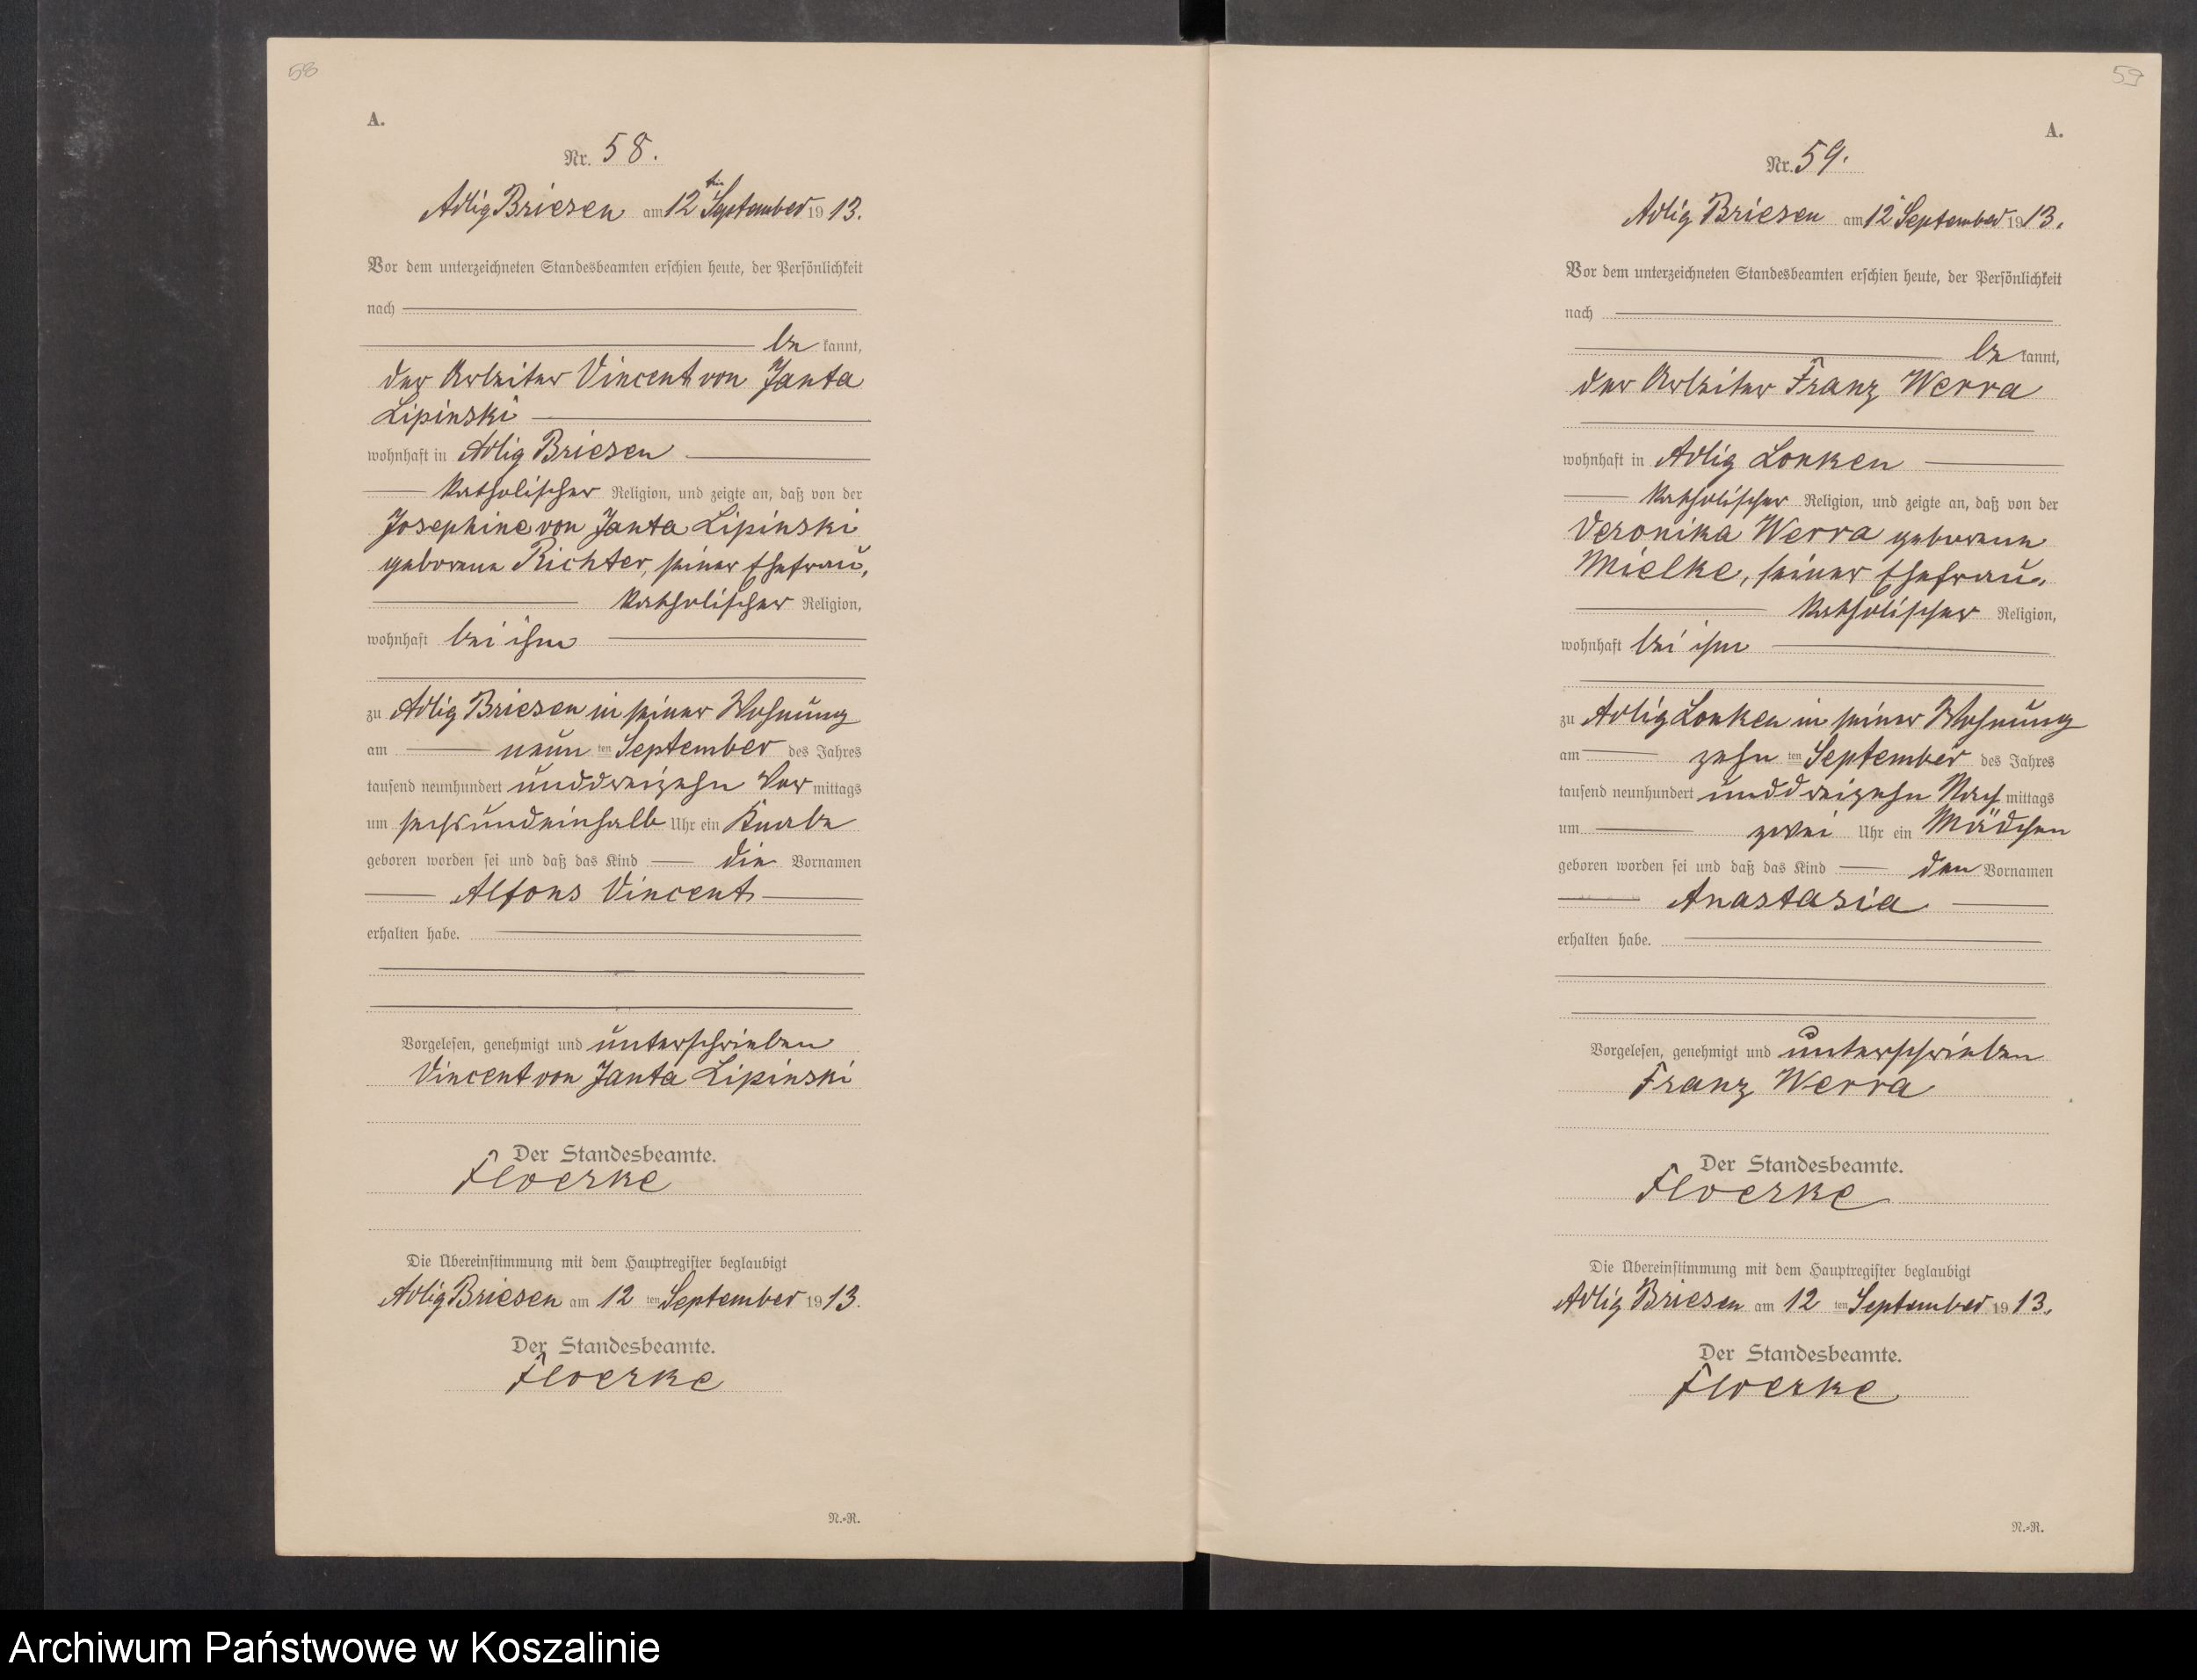 58
A.
Nr. 58.
Adlig Briesen am 12ten September 1913.
Vor dem unterzeichneten Standesbeamten erschien heute, der Persönlichkeit
nach
be kannt,
der Arbeiter Vincent von Janta
Lipinski
wohnhaft in Adlig Briesen
katholischer Religion, und zeigte an, daß von der
Josephine von Janta Lipinski
geborene Richter, seiner Ehefrau,
katholischer Religion,
wohnhaft bei ihm
zu Adlig Briesen in seiner Wohnung
am neun ten September des Jahres
tausend neunhundert unddreizehn Vor mittags
um sechsundeinhalb Uhr ein Knabe
geboren worden sei und daß das Kind die Vornamen
Alfons Vincent
erhalten habe.
Vorgelesen, genehmigt und unterschrieben
Vincent von Janta Lipinski
Der Standesbeamte.
Floerke
Die Übereinstimmung mit dem Hauptregister beglaubigt
Adlig Briesen am 12 ten September 1913.
Der Standesbeamte.
Floerke
N.-R.
59
A.
Nr. 59.
Adlig Briesen am 12 September 1913.
Vor dem unterzeichneten Standesbeamten erschien heute, der Persönlichkeit
nach
be kannt,
der Arbeiter Franz Werra
wohnhaft in Adlig Lonken
katholischer Religion, und zeigte an, daß von der
Veronika Werra geborene
Mielke, seiner Ehefrau,
katholischer Religion,
wohnhaft bei ihm
zu Adlig Lonken in seiner Wohnung
am zehn ten September des Jahres
tausend neunhundert unddreizehn Nach mittags
um zwei Uhr ein Mädchen
geboren worden sei und daß das Kind den Vornamen
Anastasia
erhalten habe.
Vorgelesen, genehmigt und unterschrieben
Franz Werra
Der Standesbeamte.
Floerke
Die Übereinstimmung mit dem Hauptregister beglaubigt
Adlig Briesen am 12 ten September 1913.
Der Standesbeamte.
Floerke
N.-R.
Archiwum Państwowe w Koszalinie